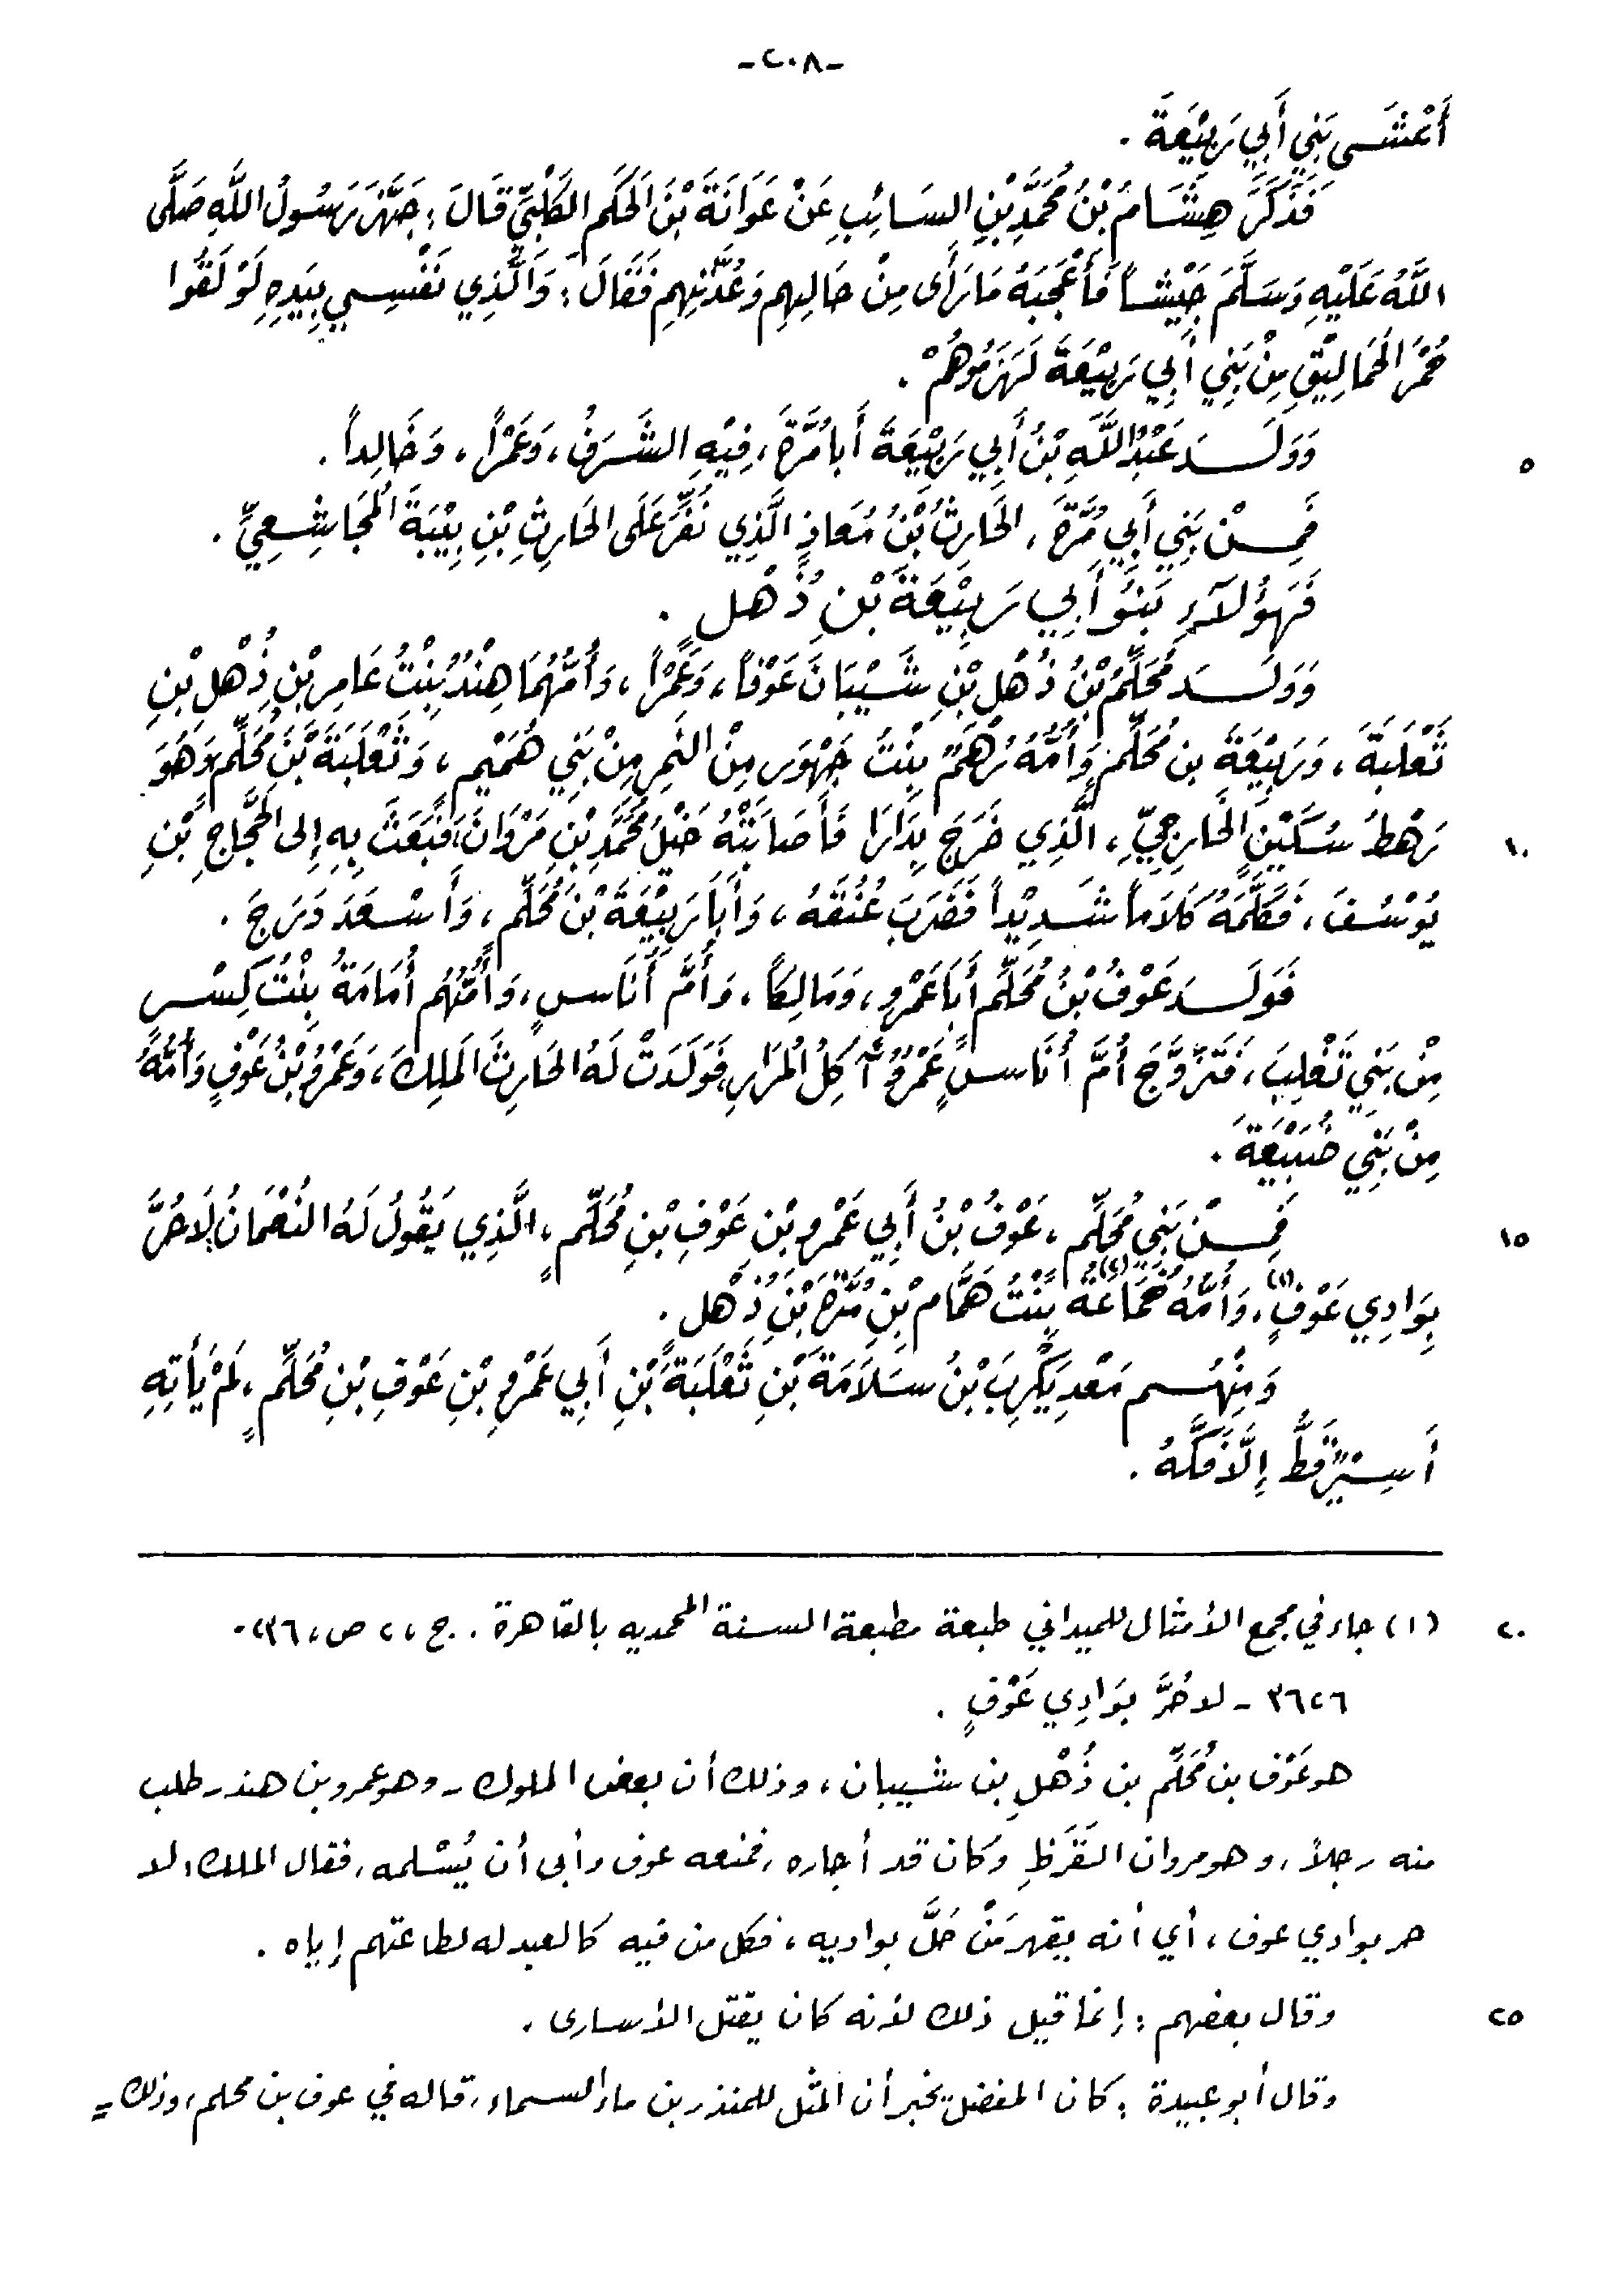 -٢٠٨-
أَعْشَى بَنِي أَبِي رَبِيْعَةَ .
فَذَكَرَ هِشَامُ بْنُ مُحَمَّدِ بْنِ السَائِبِ عَنْ عَوَانَةَ بْنِ الحَكَمِ الكَلْبِيِّ قَالَ : جَهَّزَ رَسُولُ اللَّهِ صَلَّى
اللَّهُ عَلَيْهِ وَسَلَّمَ جَيْشاً فَأَعْجَبَهُ مَا رَأَى مِنْ حَالِهِم وَعُدَّتِهِم فَقَالَ : وَالَّذِي نَفْسِي بِيَدِهِ لَوْ لَقُوا
حُمْرَ الحَمَالِيْقِ مِنْ بَنِي أَبِي رَبِيْعَةَ لَهَزَمُوهُمْ .
وَوَلَدَ عَبْدُ اللَّهِ بْنُ أَبِي رَبِيْعَةَ أَبَا مُرَّةَ ، فِيْهِ الشَّرَفُ ، وَعَمْراً ، وَخَالِداً .
٥
فَمِنْ بَنِي أَبِي مُرَّةَ ، الحَارِثُ بْنُ مُعَاذٍ الَّذِي نُفِّرَ عَلَى الحَارِثِ بْنِ بِيْبَةَ المُجَاشِعِيِّ .
فَهَؤُلآءِ بَنُو أَبِي رَبِيْعَةَ بْنِ ذُهْلٍ .
وَوَلَدَ مُحَلِّمُ بْنُ ذُهْلِ بْنِ شَيْبَانَ عَوْفاً ، وَعَمْراً ، وَأُمُّهُمَا هِنْدُ بِنْتُ عَامِرِ بْنِ ذُهْلِ بْنِ
ثَعْلَبَةَ ، وَرَبِيْعَةَ بن مُحَلِّمٍ وَأُمُّهُ رُهْمُ بِنْتُ جَهْوَرٍ مِنَ النَمِرِ مِنْ بَنِي هُمَيْمٍ ، وَثَعْلَبَةَ بْنَ مُحَلِّمٍ وَهُوَ
رَهْطُ سُكَيْنٍ الخَارِجِيِّ ، الَّذِي خَرَجَ بِدَارَا فَأَصَابَتْهُ خَيْلُ مُحَمَّدِ بْنِ مَرْوَانَ ، فَبَعَثَ بِهِ إِلى الحَجَّاجِ بْنِ
١٠
يُوْسُفَ ، فَكَلَّمَهُ كَلَاماً شَدِيْداً فَضَرَبَ عُنُقَهُ ، وَأَبَا رَبِيْعَةَ بْنَ مُحَلِّمٍ ، وَأَسْعَدَ دَرَجَ .
فَوَلَدَ عَوْفُ بْنُ مُحَلِّمٍ أَبَا عَمْرٍو ، وَمَالِكاً ، وَأُمَّ أُنَاسٍ ، وَأُمُّهُم أُمَامَةُ بِنْتُ كِسْرٍ
مِنْ بَنِي تَغْلِبَ ، فَتَزَوَّجَ أُمَّ أُنَاسٍ عَمْرُو آكِلُ المُرَارِ ، فَوَلَدَتْ لَهُ الحَارِثَ المَلِكَ ، وَعَمْرُو بْنُ عَوْفٍ وَأُمُّهُ
مِنْ بَنِي ضُبَيْعَةَ .
فَمِنْ بَنِي مُحَلِّمٍ ، عَوْفُ بْنُ أَبِي عَمْرِو بْنِ عَوْفِ بْنِ مُحَلِّمٍ ، الَّذِي يَقُولُ لَهُ النُعْمَانُ لَا حُرَّ
١٥
بِوَادِي عَوْفٍ (١) ، وَأُمُّهُ خُمَاعَةُ (٢) بِنْتُ هَمَّامِ بْنِ مُرَّةَ بْنِ ذُهْلٍ .
وَمِنْهُم مَعْدِيكَرِبَ بْنُ سَلَامَةَ بْنِ ثَعْلَبَةَ بْنِ أَبِي عَمْرِو بْنِ عَوْفِ بْنِ مُحَلِّمٍ ، لَمْ يَأْتِهِ
أَسِيْرٌ قَطُّ إِلَّا فَكَّهُ .
(١) جاء في مجمع الأمثال للميداني طبعة مطبعة السنة المحمديه بالقاهرة . ج ، ٢ ص ، ٢٣٦ .
٢٠
٣٦٢٦ - لا حُرَّ بِوَادِي عَوْفٍ .
هو عَوْف بن مُحَلِّم بن ذُهْلِ بن شيبان ، وذلك أن بعض الملوك - وهو عمرو بن هند - طلب
منه رجلاً ، وهو مروان القَرَظِ وكان قد أجاره ، فمنعه عوف وأبى أن يُسْلمه ، فقال الملك ، لا
حر بوادي عوف ، أي أنه يقهر مَنْ حَلَّ بواديه ، فكل من فيه كالعبد له لطاعتهم إياه .
وقال بعضهم : إنما قيل ذلك لأنه كان يقتل الأسارى .
٢٥
وقال أبو عبيدة : كان المفضل يخبر أن المثل للمنذر بن ماء السماء ، قاله في عوف بن محلم ، وذلك =